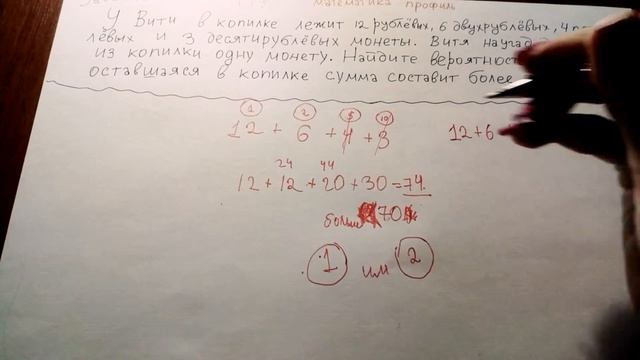 математика профиль
У Вити в копилке лежит 12 рублёвых, 6 двухрублёвых, 4
лёвых и 3 десятирублёвых монеты. Витя наугад
из копилки одну монету. Найдите вероятность
оставшаяся в копилке сумма составит более
1 2 5 10
12 + 6 + 4 + 3
12+6
24 44
12 + 12 + 20 + 30 = 74.
больше 70
1 или 2